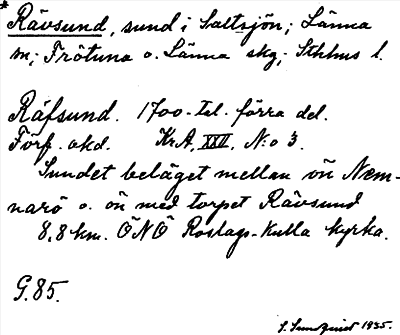 * Rävsund, sund i Saltsjön; Länna
sn; Frötuna o. Länna skg; Sthlms l.
Räfsund. 1700-tal. förra del.
Förf. okd. Kr.A, XXII, N:o 3.
Sundet beläget mellan ön Näm-
narö o. ön med torpet Rävsund
8,8 km. ÖNÖ Roslags-Kulla kyrka.
G.85.
S. Sundqvist 1935.